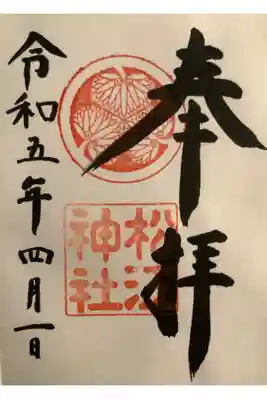 奉拝
松江
神社
令和五年四月一日